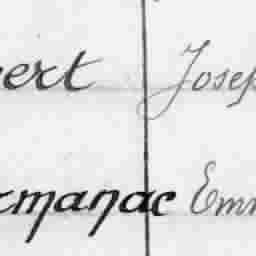 vert Josep
rmanac Emm